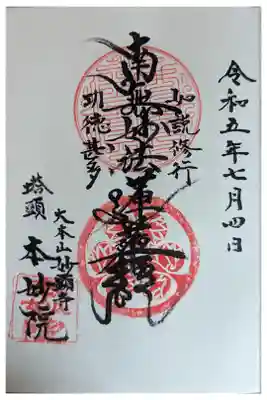 令和五年七月四日
如説修行
南無妙法蓮華経
功徳甚多
大本山妙顕寺
塔頭
本妙院